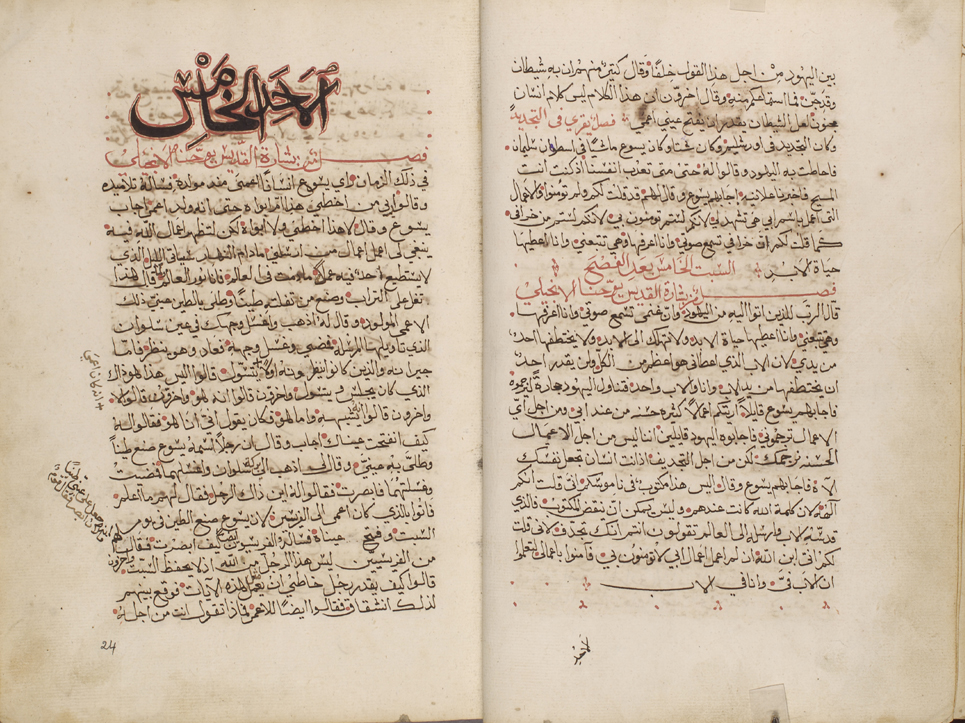 بين اليهود من اجل هذا القول خلفا وقال كثير منهم ان به شيطان
وقد جن فما استماعكم منه وقال اخرون ان هذا الكلام ليس كلام انسان
مجنون لعل الشيطان يقدر ان يفتح عيني اعمى فصل يقرى في التجديد
وكان التجديد في اورشليم وكان شتا وكان يسوع ماشيا في اسطوان سليمان
فاحاطت به اليهود وقالوا له حتى متى تعذب انفسنا ان كنت انت
المسيح فاخبرنا علانيه اجابهم يسوع وقال لهم قد قلت لكم ولم تومنوا والاعمال
التي اعمل باسم ابي هي تشهد لي لانكم لستم تومنون بي لانكم لستم من خرافي
كما قلت لكم ان خرافي تسمع صوتي وانا اعرفها وهي تتبعني وانا اعطيها
حياة الابد
السبت الخامس بعد الفصح
فصل من بشارة القديس يوحنا الانجيلي
قال الرب للذين اتوا اليه من اليهود ان غنمي تسمع صوتي وانا اعرفها
وهي تتبعني وانا اعطيها حياة الابد ولا تهلك الى الابد ولا يختطفها احد
من يدي لان الاب الذي اعطاني هو اعظم من الكل ولن يقدر احد
ان يختطفها من يد الاب وانا والاب واحد فتناول اليهود حجارة ليرجموه
فاجابهم يسوع قايلا اريتكم اعمالا كثيره حسنه من عند ابي ومن اجل اي
الاعمال ترجموني فاجابوه اليهود قايلين اننا ليس من اجل الاعمال
الحسنه نرجمك لكن من اجل التجديف اذ انت انسان تجعل نفسك
الاه فاجابهم يسوع وقال اليس هذا مكتوب في ناموسكم اني قلت انكم
آلهه لان كلمة الله كانت عندهم وليس يمكن ان ينقض المكتوب فالذي
قدسه الاب وارسله الى العالم تقولون انتم انك تجدف لاني قلت
لكم اني ابن الله ان لم اعمل اعمال ابي لا تومنون بي فامنوا باعمالي لتعلموا
ان الاب في وانا في الاب
لاحد
الاحد الخامس
فصل من بشارة القديس يوحنا الانجيلي
في ذلك الزمان راي يسوع انسانا اعمى منذ مولده فساله تلاميذه
وقالوا يا ربي من اخطي هذا ام ابواه حتى انه ولد اعمى اجاب
يسوع وقال لا هذا اخطي ولا ابواه لكن لتظهر اعمال الله فيه
ينبغي لي اعمل اعمال من ارسلني ما دام النهار سياتي الليل الذي
لا يستطيع احد فيه عملا ما دمت في العالم فانا نور العالم قال هذا
تفل على التراب وصنع من تفلته طينا وطلى بالطين عيني ذلك
الاعمى المولود وقال له اذهب واغسل وجهك في عين سلوان
الذي تاويلها الرسله فمضى وغسل وجهه فعاد وهو ينظر فاما
جيرانه والذين كانوا ينظرونه اولا يتسول قالوا اليس هذا هو ذاك
الذي كان يجلس يتسول واخرون قالوا انه هو واخرون قالوا لا
واخرون قالوا يشبهه وما هو فكان يقول اني انا هو فقالوا له
كيف انفتحت عيناك اجاب وقال ان رجلا اسمه يسوع صنع طينا
وطلى به عيني وقال لي اذهب الى سلوان واغسلهما فمضيت
وغسلتهما فابصرت فقالوا له اين ذاك الرجل فقال لهم ما اعلم
فاتوا بالذي كان اعمى الى الفريسين لان يسوع صنع الطين في يوم
السبت وفتح عيناه فساله الفريسيون كيف ابصرت فقال لهم
من الفريسيين ليس هذا الرجل من الله اذ لا يحفظ السبت واخرون
قالوا كيف يقدر رجل خاطي ان يعمل هذه الايات فوقع بينهم
لذلك انشقاق فقالوا ايضا للاعمى فماذا تقول انت من اجله
24